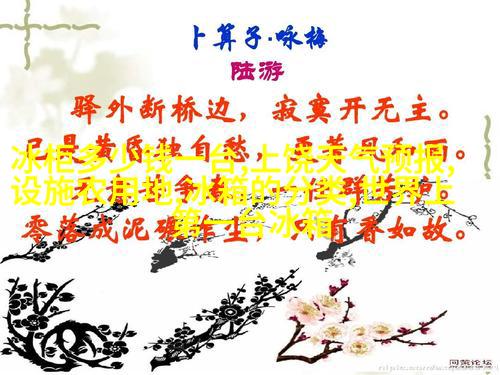 卜算子·咏梅
陆游
驿外断桥边，寂寞开无主。
已是黄昏独自愁，
冰柜多少钱一台,上饶天气预报,
设施农用地,冰箱的分类,世界上
第一台冰箱
零落成泥碾作尘，只有香如故。